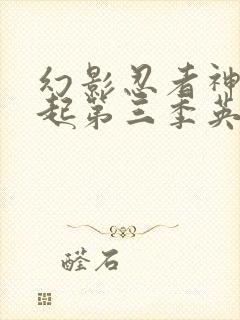 幻影忍者神
起第三季英
醛石